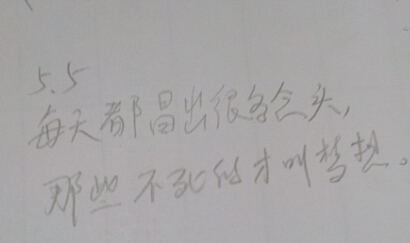 5.5
每天都冒出很多念头，
那些不死的才叫梦想。